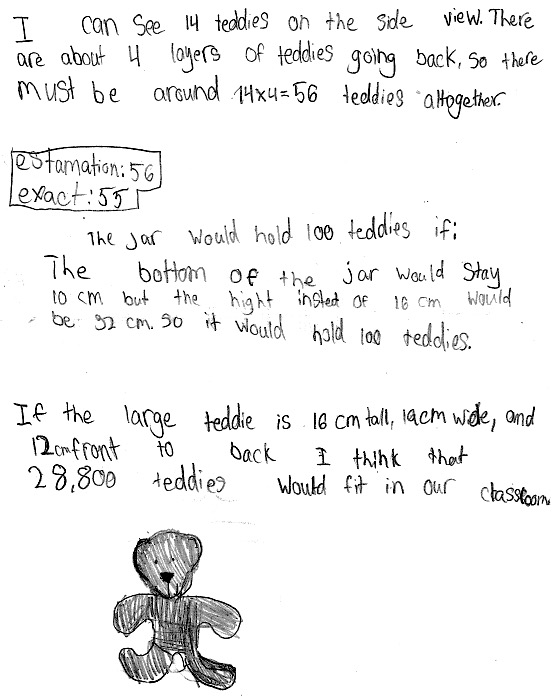 I can see 14 teddies on the side view. There
are about 4 layers of teddies going back, so there
must be around 14x4=56 teddies altogether.
estamation: 56
exact: 55
The jar would hold 100 teddies if:
The bottom of the jar would stay
10 cm but the hight insted of 16 cm would
be 32 cm. so it would hold 100 teddies.
If the large teddie is 16 cm tall, 14cm wide, and
12cm front to back I think that
28,800 teddies would fit in our classroom